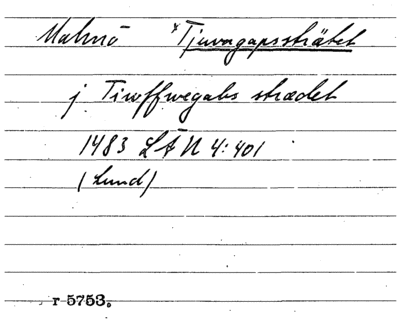 Malmö *Tjuvagapssträtet
j Tiwffwegabs strædet
1483 LÄN 4:401
(Lund)
r 5753.